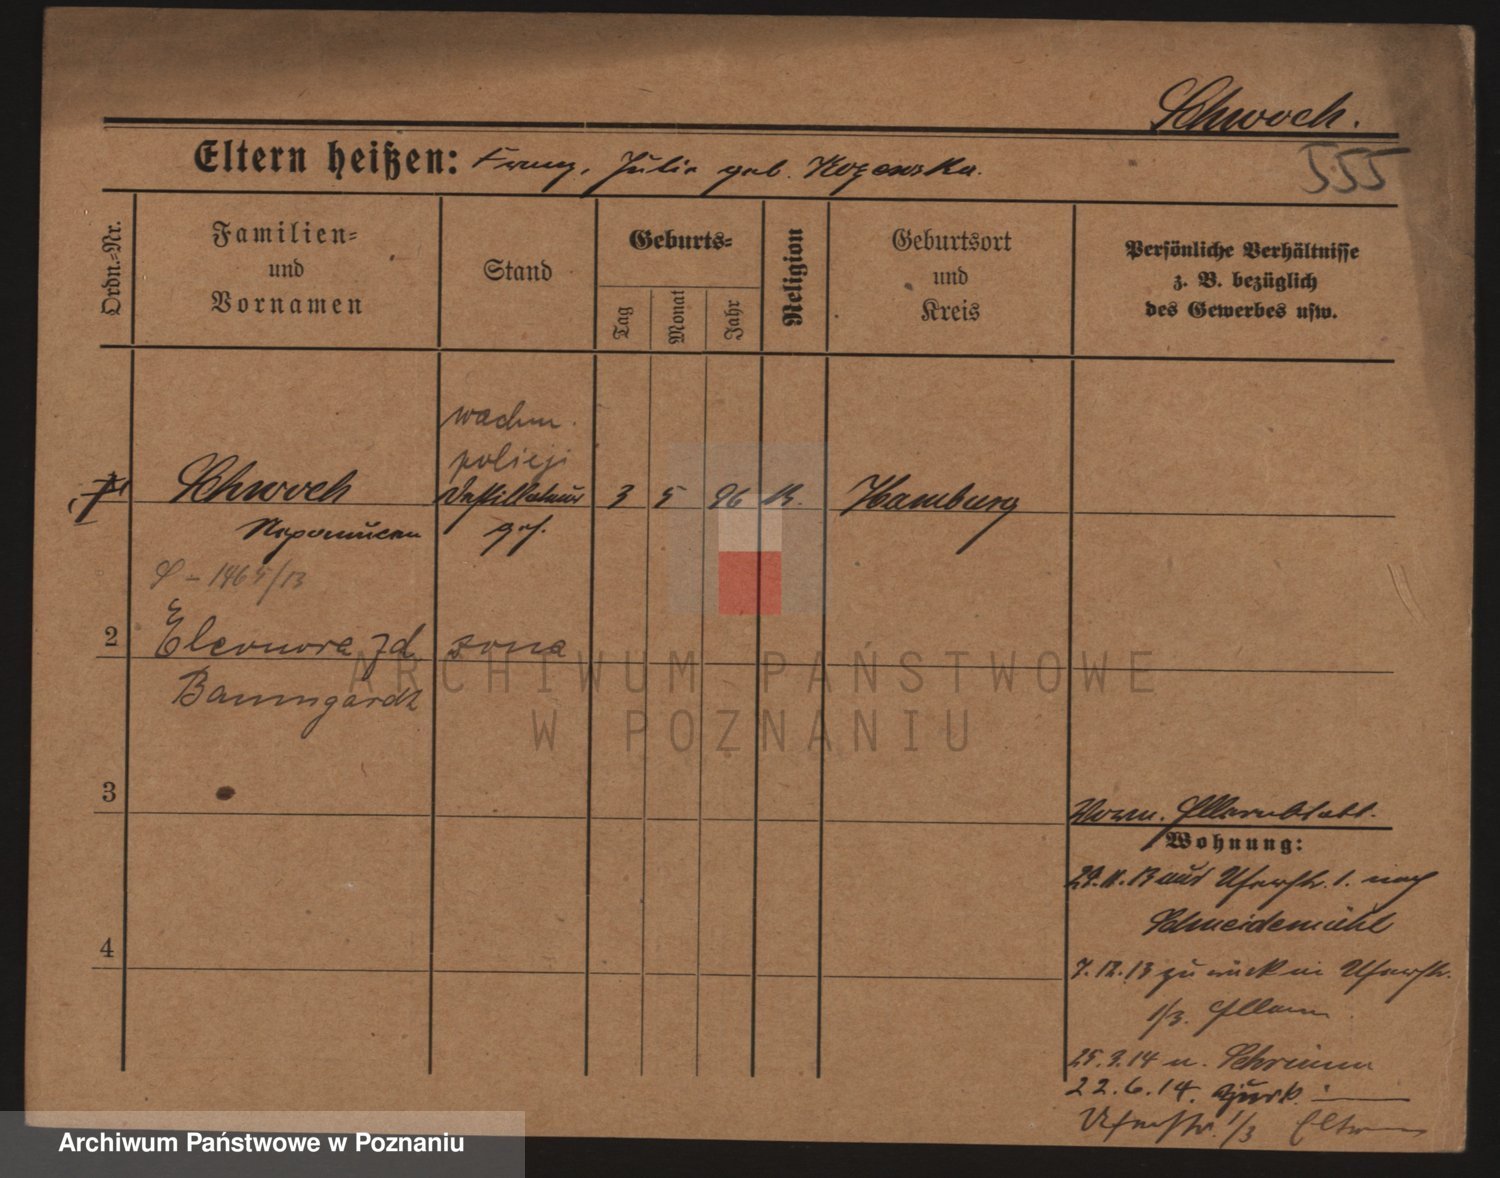 Schwoch.
Eltern heißen: Franz, Julie geb. Kozewska.
555
Ordn.-Nr.
Familien-
und
Vornamen
Stand
Geburts-
Tag
Monat
Jahr
Religion
Geburtsort
und
Kreis
Persönliche Verhältnisse
z. B. bezüglich
des Gewerbes usw.
wachm.
policji
1 Schwoch Destillateur 3 5 96 k. Hamburg
Nepomucen geh.
1465/13
2 Eleonora zd żona
Baumgardt
ARCHIWUM PAŃSTWOWE
W POZNANIU
3
Wohnung:
29.11.13 aus Uferstr. 1. nach
Schneidemühl
4
7.12.13 zurück in Uferstr.
1/3. Eltern
25.3.14 n. Schrimm
22.6.14. zurk.
Uferstr. 1/3 Eltern
Archiwum Państwowe w Poznaniu